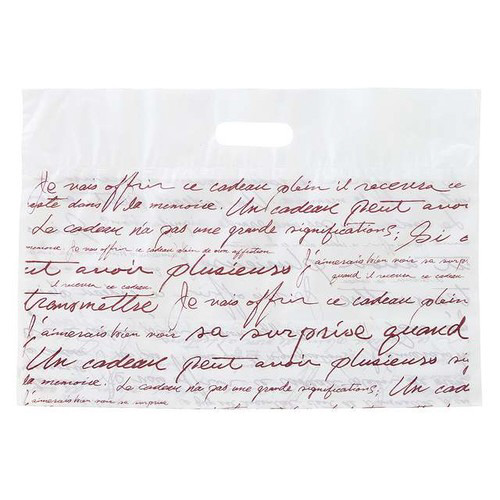 Je vais offrir ce cadeau plein il recevra ce
reste dans la memoire. Un cadeau peut avoir
La cadeau n'a pas une grande significations; Si
memoire. Je vais offrir ce cadeau plein de mon affection
J'aimerais bien voir sa surpr
ut avoir plusieurs
quand il recever ce cadeau.
il recever ce cadeau
transmettre Je vais offrir ce cadeau plein
J'aimerais bien voir sa surprise quand
Un cadeau peut avoir plusieurs si
la memoire. La cadeau n'a pas une grande significations; Un cad
J'aimerais bien voir sa surprise